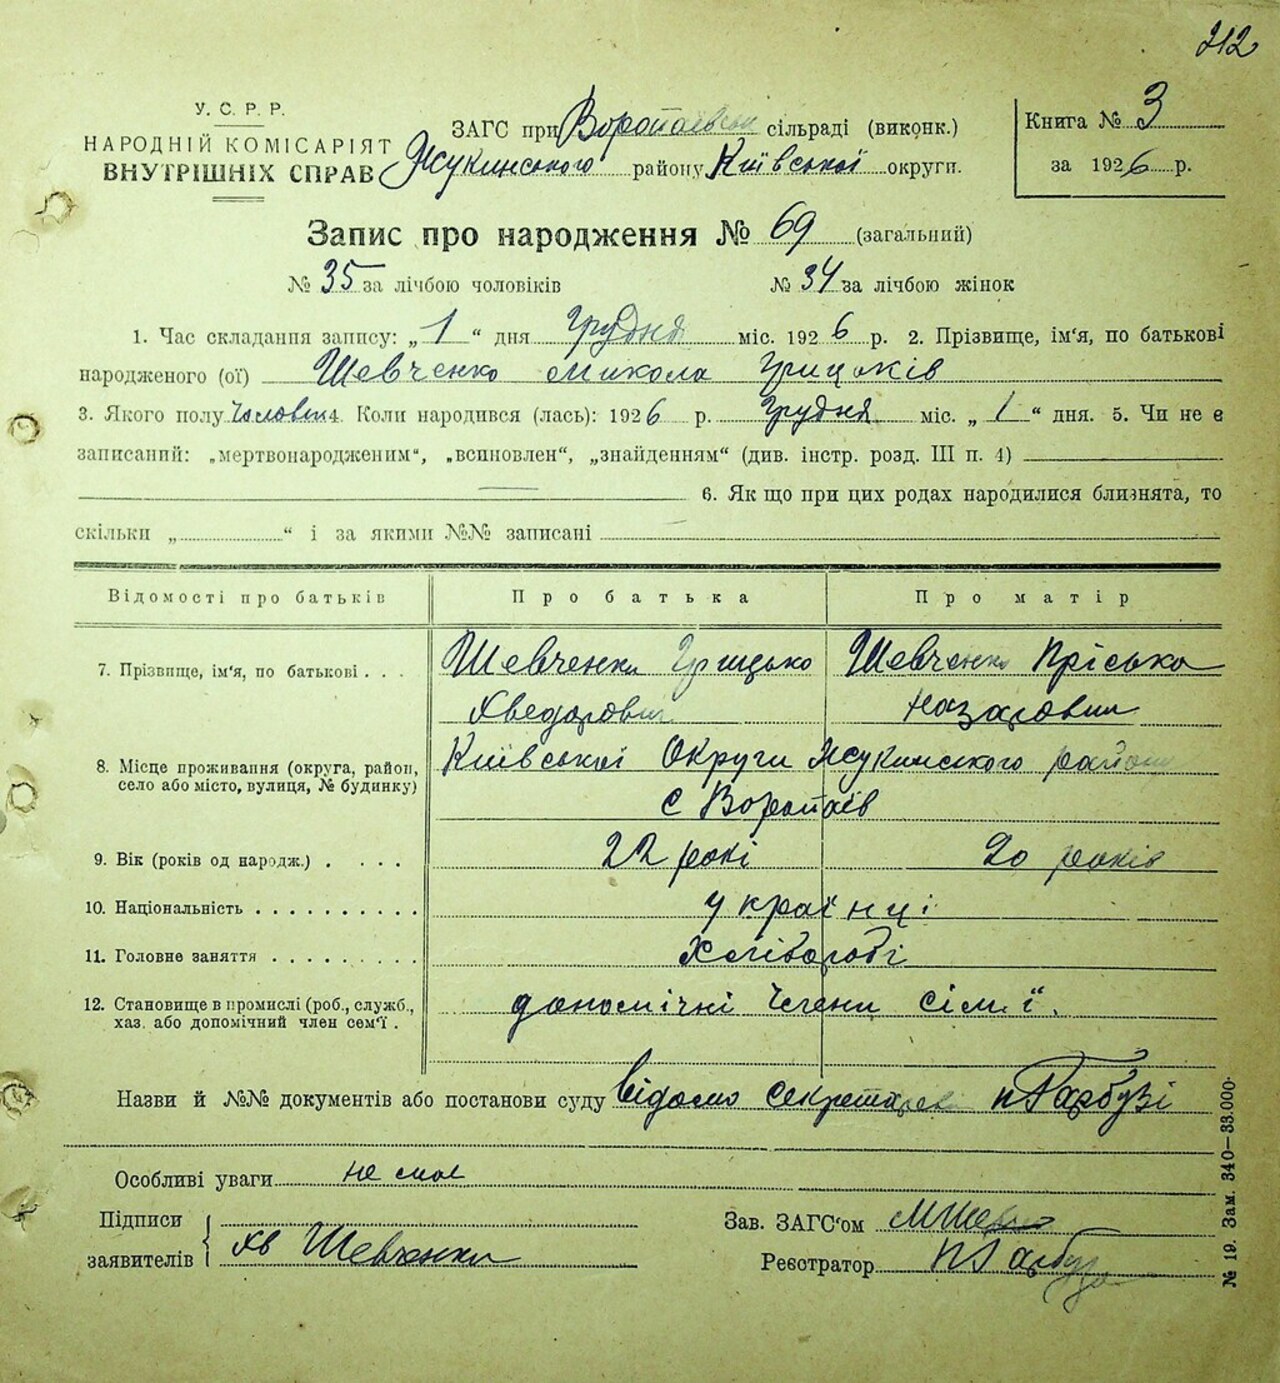 212
У. С. Р. Р.
НАРОДНІЙ КОМІСАРІЯТ
ВНУТРІШНІХ СПРАВ
ЗАГС при Воропаївськ сільраді (виконк.)
Жукинського району Київської округи.
Книга № 3
за 1926 р.
Запис про народження № 69 (загальний)
№ 35 за лічбою чоловіків № 34 за лічбою жінок
1. Час складання запису: „ 1 “ дня Грудня міс. 1926 р. 2. Прізвище, ім'я, по батькові
народженого (ої) Шевченко Микола Грицьків
3. Якого полу Чоловік 4. Коли народився (лась): 1926 р. Грудня міс. „ 1 “ дня. 5. Чи не є
записаний: „мертвонародженим“, „всиновлен“, „знайденням“ (див. інстр. розд. III п. 4)
6. Як що при цих родах народилися близнята, то
скільки „ “ і за якими №№ записані
Відомості про батьків Про батька Про матір
7. Прізвище, ім'я, по батькові . . . Шевченко Грицько Шевченко Пріська
Хведорович Назаровна
8. Місце проживання (округа, район, село або місто, вулиця, № будинку) Київської Округи Жукинського району
с Воропаїв
9. Вік (років од народж.) . . . . 22 рокі 20 років
10. Національність . . . . . . . . . . українці
11. Головне заняття . . . . . . . . . Хліборобі
12. Становище в промислі (роб., служб., хаз. або допомічний член сем'ї . допомічні члени сімї.
Назви й №№ документів або постанови суду Відомо секретарев П Гарбузі
Особливі уваги не має
Підписи
заявителів Хв Шевченко
Зав. ЗАГС'ом
Реєстратор П Гарбуз
№ 19. Зам. 340—33.000.